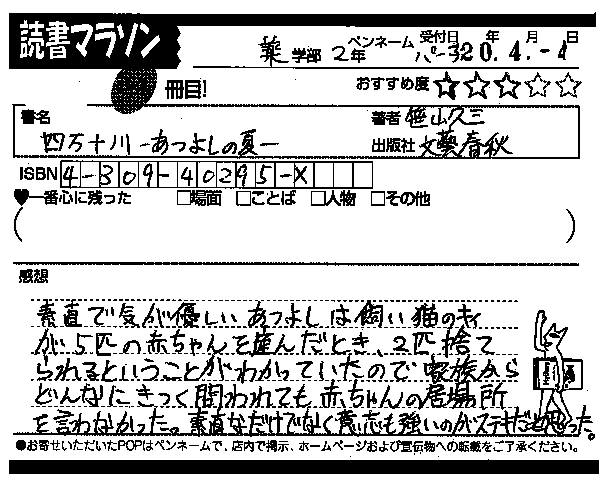 読書マラソン
薬 学部 2年 ペンネーム パーラ 受付日 20年 4月 -4日
冊目! おすすめ度 ★★★☆☆
書名 四万十川-あつよしの夏- 著者 笹山久三
出版社 文藝春秋
ISBN 4-309-40295-X
♥一番心に残った □場面 □ことば □人物 □その他
( )
感想
素直で気が優しい あつよし は 飼い猫のキィ
が 5匹 の 赤ちゃんを産んだとき、2匹 捨て
られるということがわかっていたので 家族から
どんなに きつく 問われても 赤ちゃんの居場所
を言わなかった。素直なだけでなく意志も強いのがステキだと思った。
●お寄せいただいたPOPはペンネームで、店内で掲示、ホームページおよび宣伝物への転載をご了承ください。